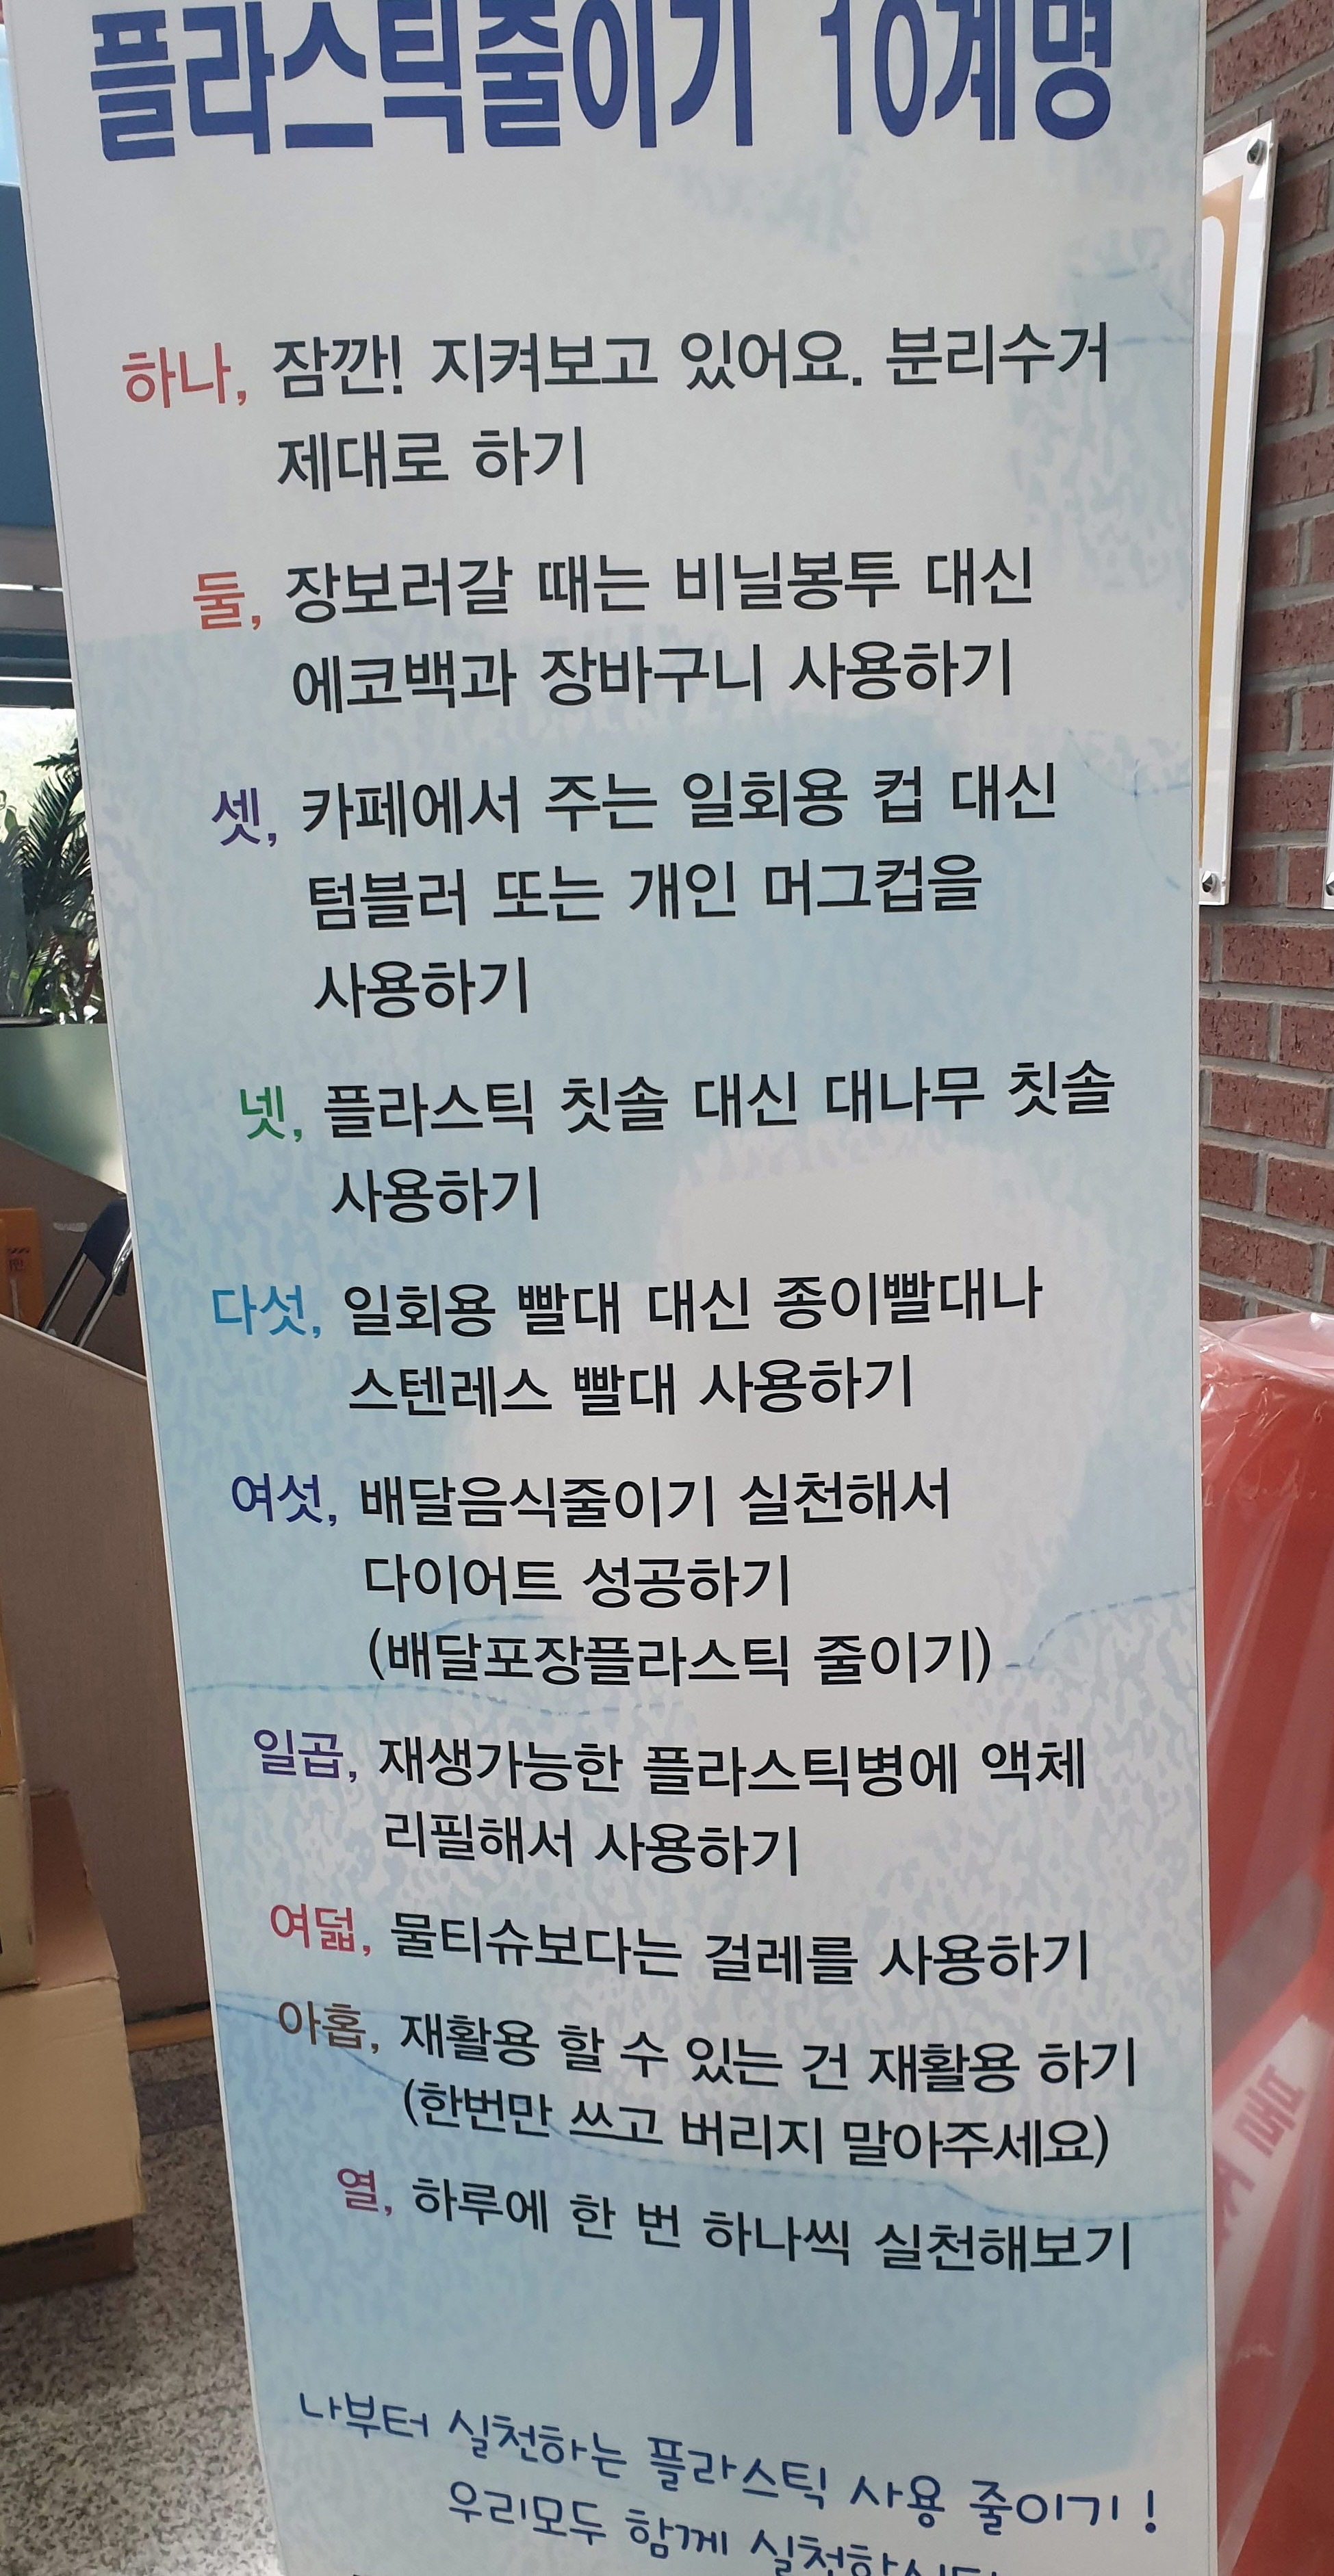 플라스틱줄이기 10계명
하나, 잠깐! 지켜보고 있어요. 분리수거
제대로 하기
둘, 장보러갈 때는 비닐봉투 대신
에코백과 장바구니 사용하기
셋, 카페에서 주는 일회용 컵 대신
텀블러 또는 개인 머그컵을
사용하기
넷, 플라스틱 칫솔 대신 대나무 칫솔
사용하기
다섯, 일회용 빨대 대신 종이빨대나
스텐레스 빨대 사용하기
여섯, 배달음식줄이기 실천해서
다이어트 성공하기
(배달포장플라스틱 줄이기)
일곱, 재생가능한 플라스틱병에 액체
리필해서 사용하기
여덟, 물티슈보다는 걸레를 사용하기
아홉, 재활용 할 수 있는 건 재활용 하기
(한번만 쓰고 버리지 말아주세요)
열, 하루에 한 번 하나씩 실천해보기
나부터 실천하는 플라스틱 사용 줄이기!
우리모두 함께